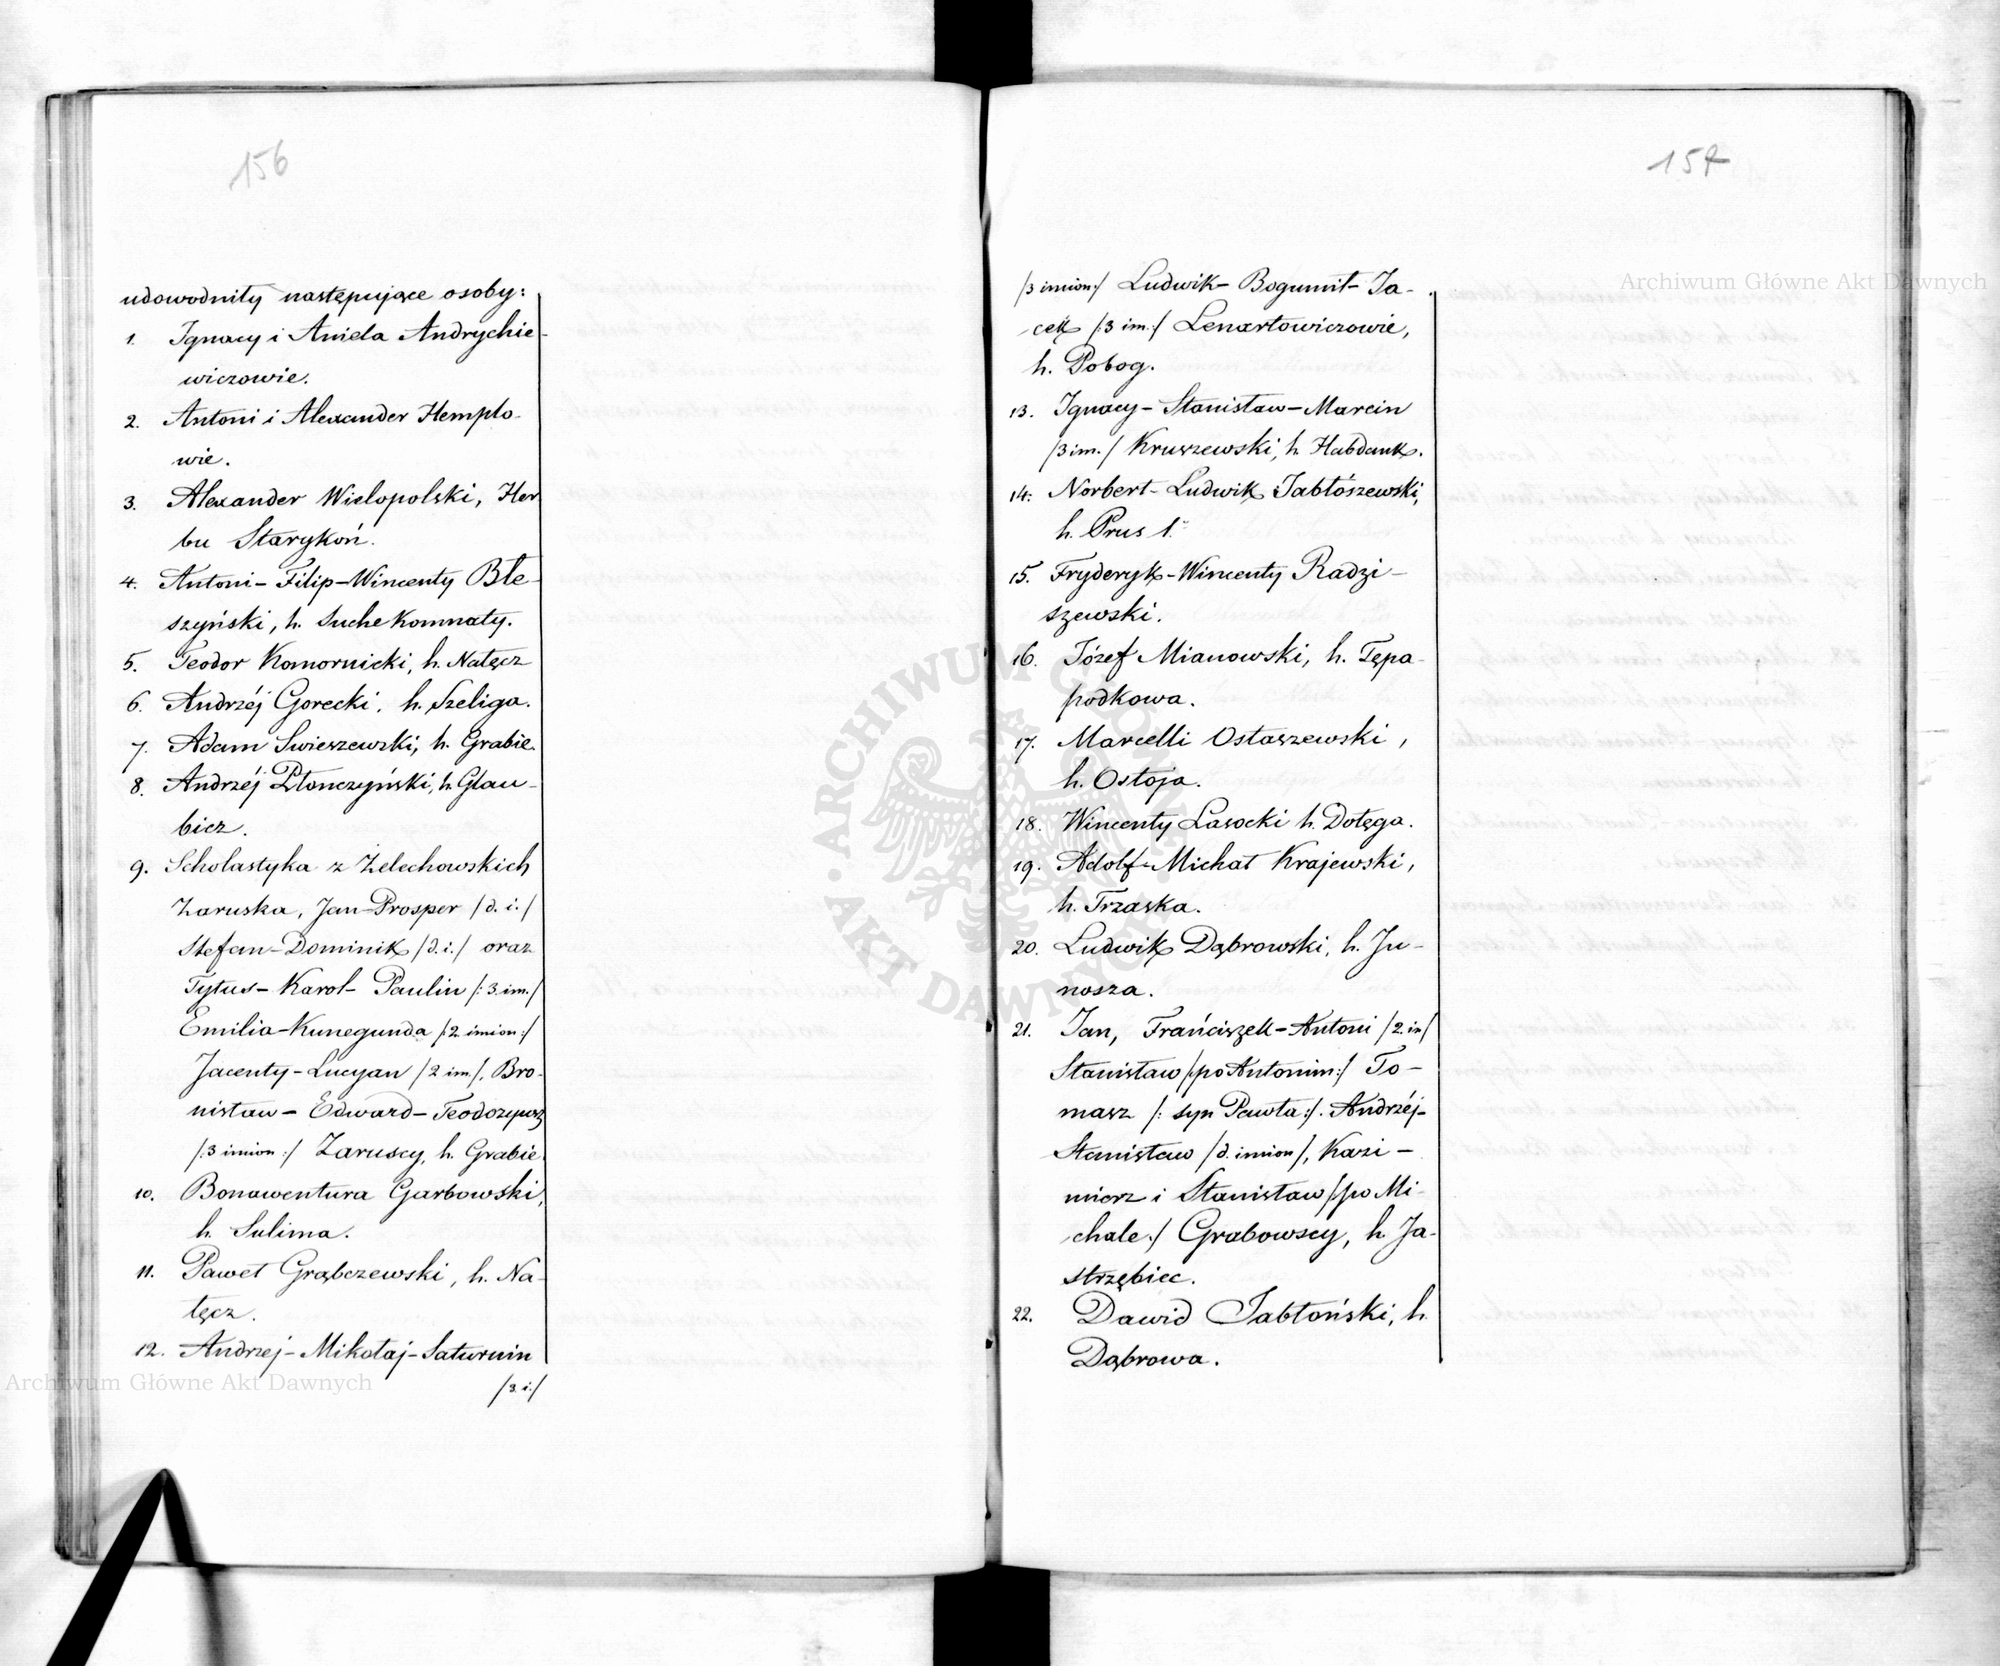 156
udowodniły następujące osoby:
1. Ignacy i Aniela Andrychie-
wiczowie.
2. Antoni i Alexander Hemplo-
wie.
3. Alexander Wielopolski, Her
bu Starykoń.
4. Antoni-Filip-Wincenty Błe-
szyński, h. Suche Komnaty.
5. Teodor Komornicki, h. Nałęcz
6. Andrzéj Gorecki, h. Szeliga.
7. Adam Swieszewski, h. Grabie.
8. Andrzéj Płonczyński, h. Glau-
bicz.
9. Scholastyka z Żelechowskich
Zaruska, Jan-Prosper /d. i./
Stefan-Dominik /d. i./ oraz
Tytus-Karol-Paulin /: 3. im./
Emilia-Kunegunda /2. imion:/
Jacenty-Lucyan /2 im./, Bro-
nisław-Edward-Teodozyusz
/:3 imion:/ Zaruscy, h. Grabie.
10. Bonawentura Garbowski,
h. Sulima.
11. Paweł Grąbczewski, h. Na-
łęcz.
12. Andrzej-Mikołaj-Saturnin
/3 i:/
Archiwum Główne Akt Dawnych
157
/3 imion:/ Ludwik-Bogumił-Ja-
cek /:3 im:/ Lenartowiczowie,
h. Pobog.
13. Ignacy-Stanisław-Marcin
/3 im./ Kruszewski, h. Habdank.
14. Norbert-Ludwik Jabłószewski,
h. Prus 1.
15. Fryderyk-Wincenty Radzi-
szewski.
16. Józef Mianowski, h. Tępa-
podkowa.
17. Marcelli Ostaszewski,
h. Ostoja.
18. Wincenty Lasocki h. Dołęga.
19. Adolf-Michał Krajewski,
h. Trzaska.
20. Ludwik Dąbrowski, h. Ju-
nosza.
21. Jan, Frańciszek-Antoni /2. im/
Stanisław /:po Antonim:/ To-
masz /: syn Pawła:/. Andrzéj-
Stanisław /d. imion/, Kazi-
mierz i Stanisław /:po Mi-
chale:/ Grabowscy, h. Ja-
strzębiec.
22. Dawid Jabłoński, h.
Dąbrowa.
Archiwum Główne Akt Dawnych
ARCHIWUM GŁÓWNE AKT DAWNYCH